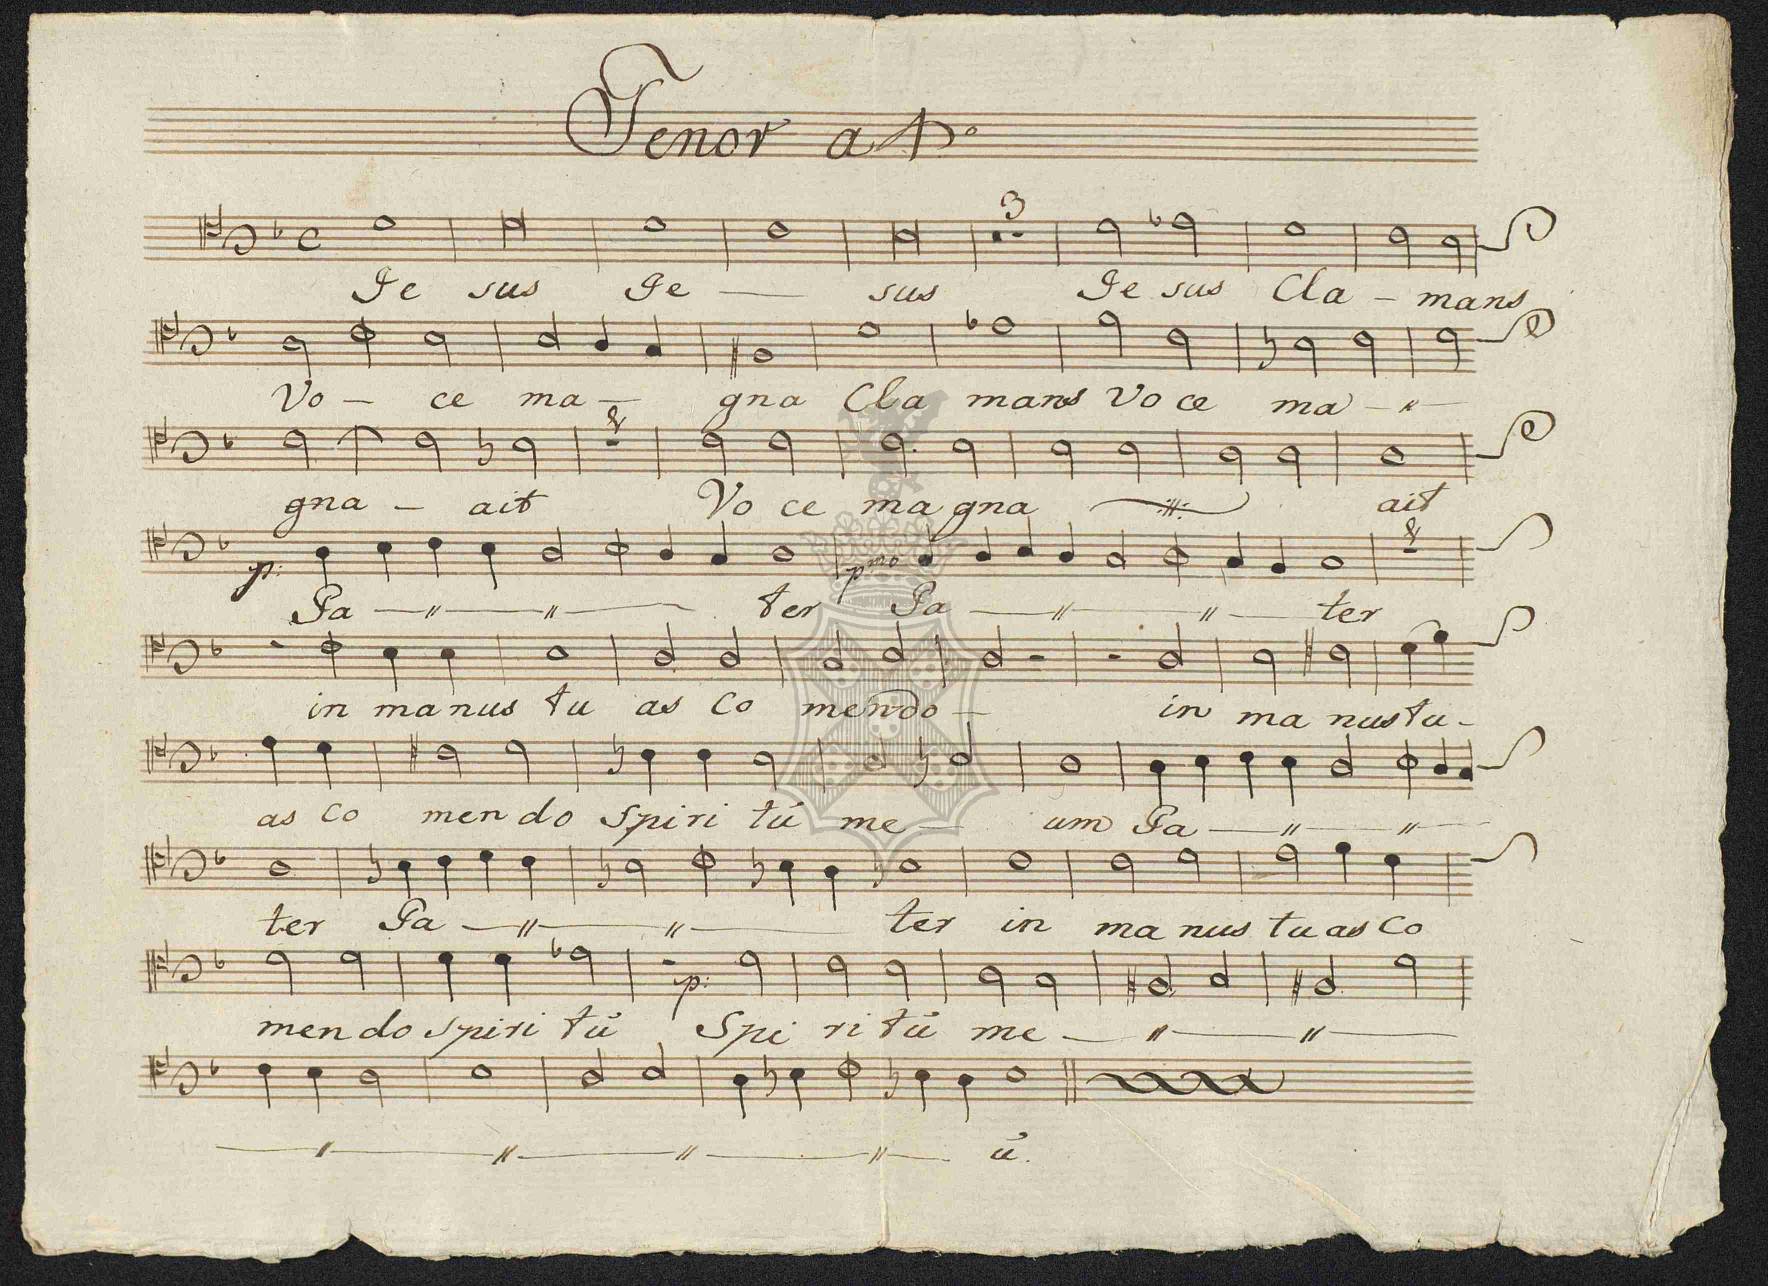 Tenor a 4º
3
Je sus Je — sus Je sus Cla - mans
Vo - ce ma - gna Cla mans Vo ce ma - " -
gna - ait Vo ce ma gna ait
p: pmo
Pa - " - " - ter Pa - " - " - ter
in ma nus tu as Co mendo - in ma nus tu -
as Co men do Spi ri tū me - um Pa - " - " -
ter Pa - " - " - ter in ma nus tu as Co
p:
men do spi ri tū Spi ri tū me - " - " -
- " - " - " - " - ū.